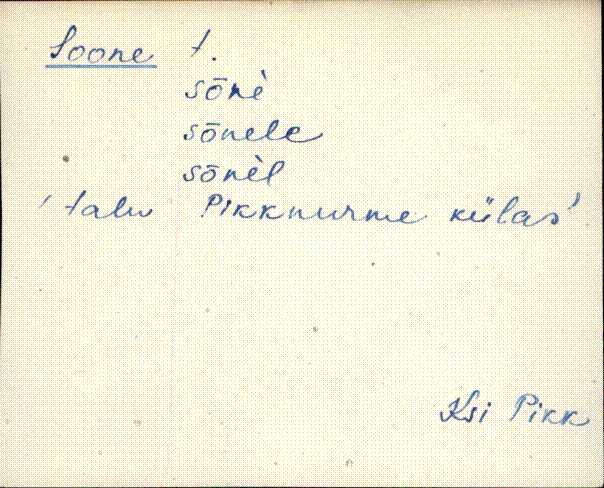 Soone t.
sōnè
sōnele
sōnèl
'talu Pikknurme külas'
Ksi Pikk